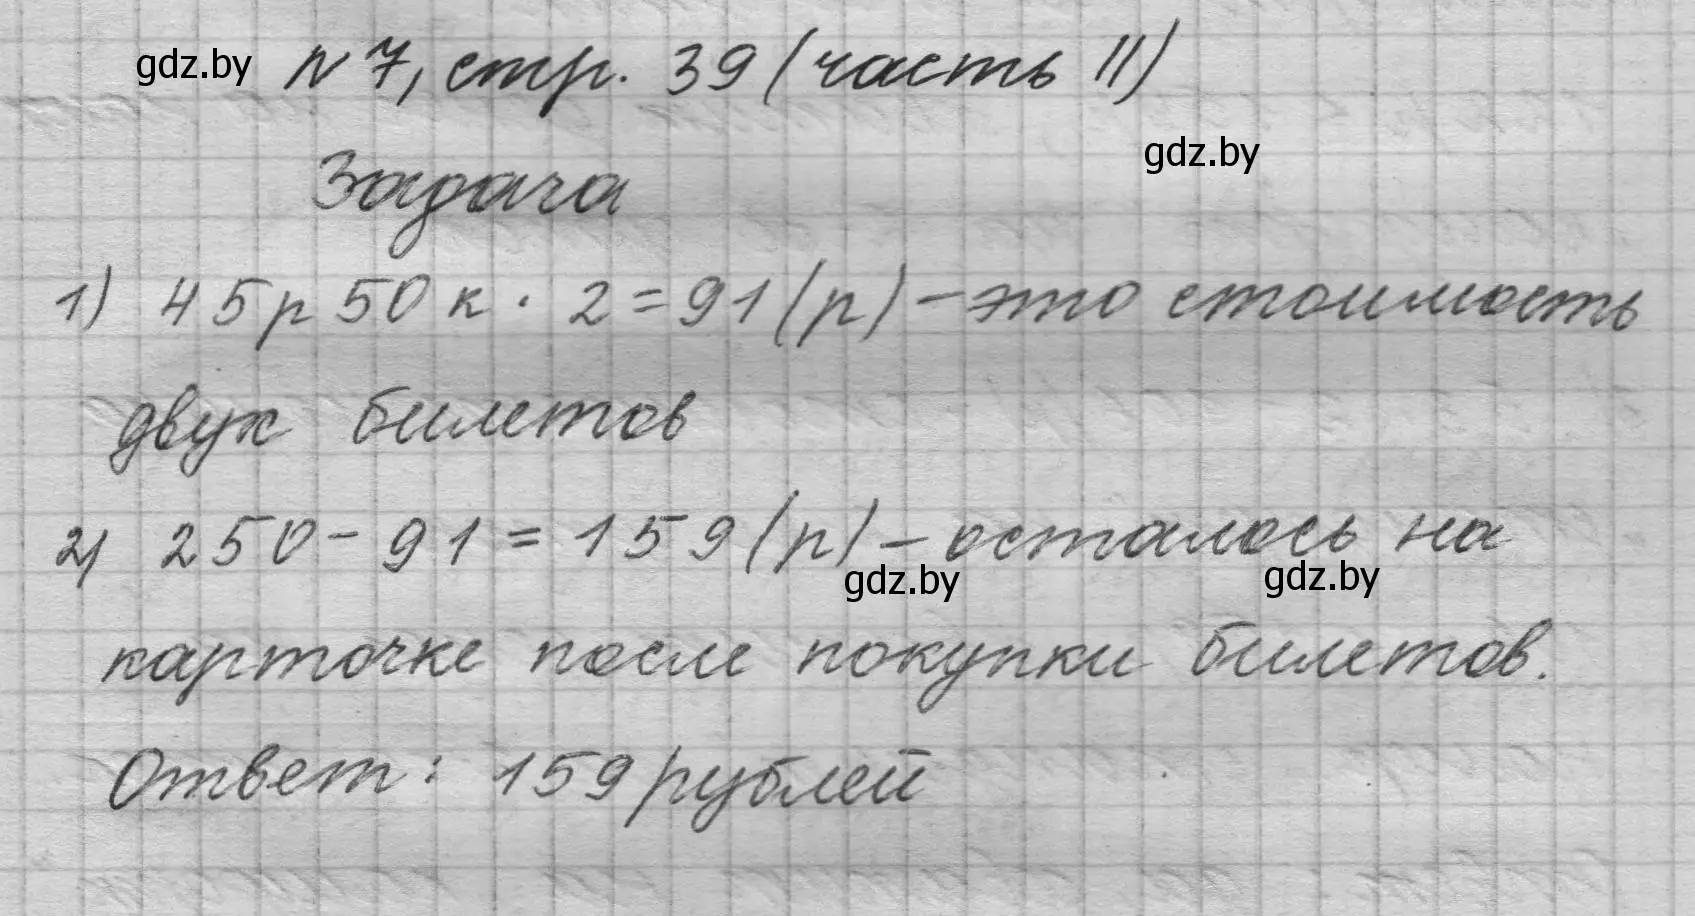 gdz.by № 7, стр. 39 (часть II)
gdz.by
Задача
1) 45 р 50 к · 2 = 91 (р) – это стоимость
двух билетов
2) 250 – 91 = 159 (р) – осталось на
gdz.by gdz.by
карточке после покупки билетов.
Ответ: 159 рублей